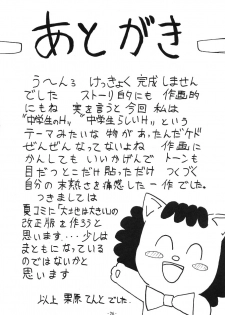 あとがき
う～ん、けっきょく完成しません
でした ストーリ的にも 作画的
にもね 実を言うと今回 私は
"中学生のH" "中学生らしいH" という
テーマみたいな物があったんだケド
ぜんぜんなってないよね 作画に
かんしてもいいかげんで トーンも
目だつとこだけ貼っただけ つくづく
自分の未熟さを痛感した一作でした。
つきましては
夏コミに「大地は大きい」の
改正版を作ろうと
思います…少しは
まともになっている
のではないかと
思います
以上 でした。